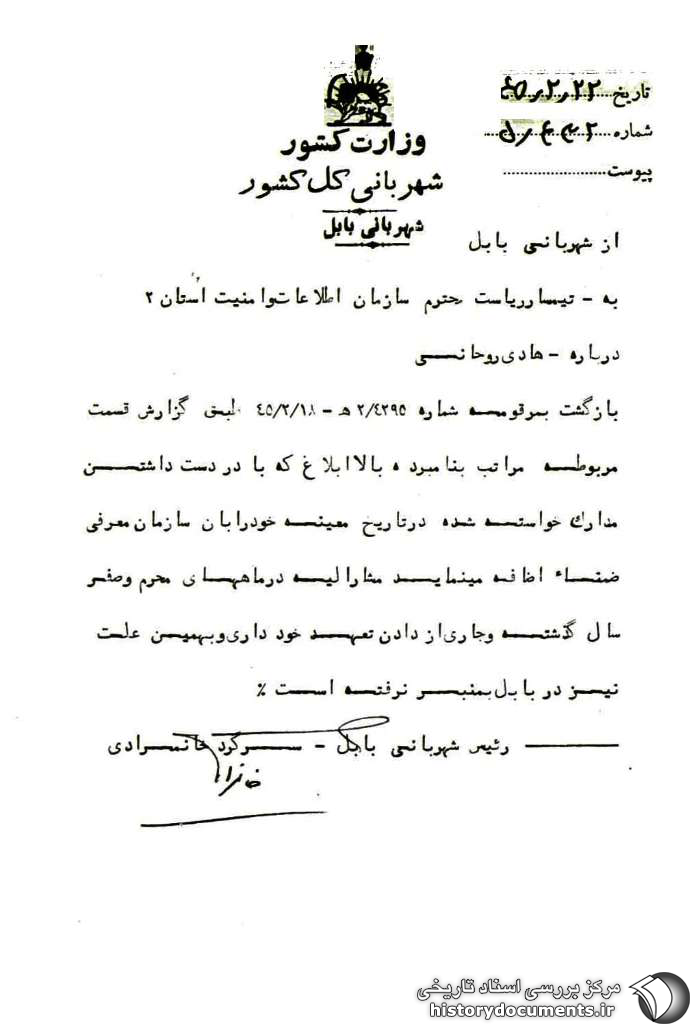 وزارت کشور
شهربانی کل کشور
شهربانی بابل
تاریخ ۴۵/۲/۲۲
شماره
پیوست
از شهربانی بابل
به - تیمسار ریاست محترم سازمان اطلاعات و امنیت استان ۲
درباره - هادی روحانی
بازگشت بمرقومه شماره ۲/۴۲۹۵ هـ - ۴۵/۲/۱۸ طبق گزارش قسمت
مربوطه مراتب بنامبرده بالا ابلاغ که با در دست داشتن
مدارک خواسته شده در تاریخ معینه خود را بان سازمان معرفی
ضمناء اظافه مینماید مشارالیه در ماههای محرم و صفر
سال گذشته و جاری از دادن تعهد خود داری و بهمین علت
نیز در بابل بمنبر نرفته است ٪
رئیس شهربانی بابل - سرگرد خانمرادی
مرکز بررسی اسناد تاریخی
historydocuments.ir